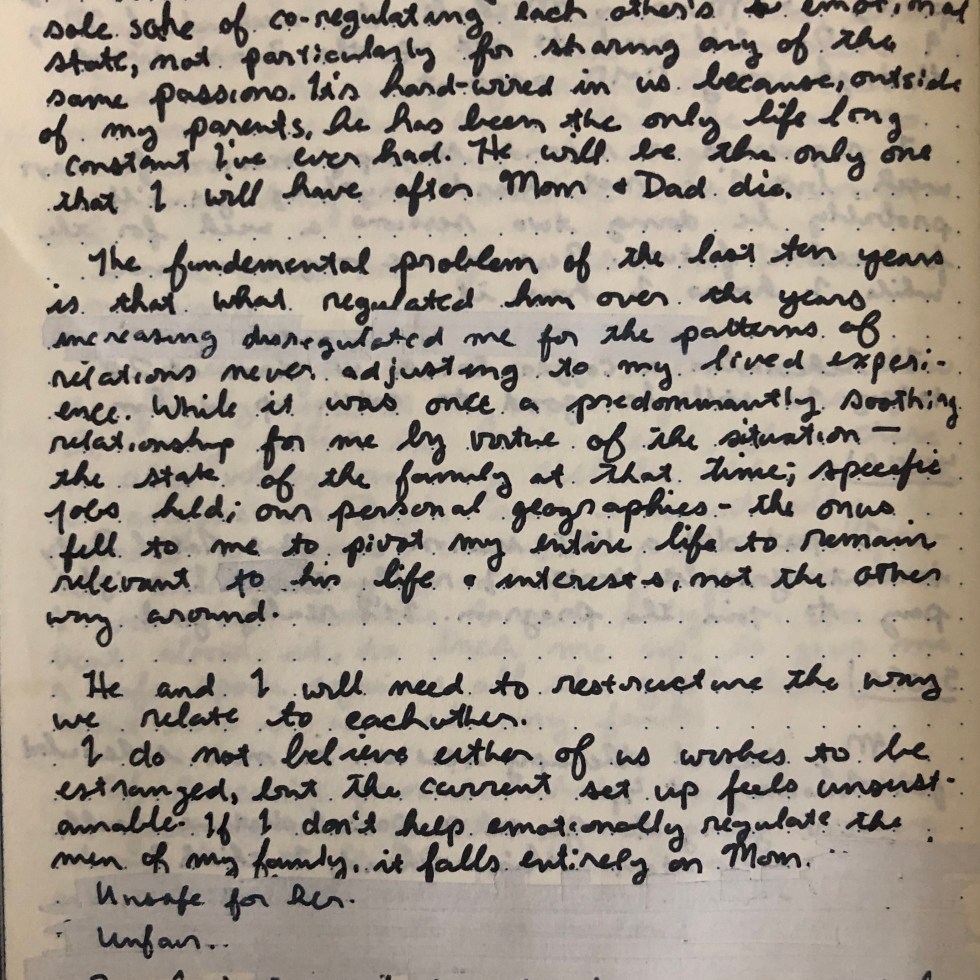 sole sake of co-regulating each other's emotional
state, not particularly for sharing any of the
same passions. It's hard-wired in us because, outside
of my parents, he has been the only life long
constant I've ever had. He will be the only one
that I will have after Mom & Dad die.
The fundemental problem of the last ten years
is that what regulated him over the years
increasing disregulated me for the patterns of
relations never adjusting to my lived experi-
ence. While it was once a predominantly soothing
relationship for me by virtue of the situation —
the state of the family at that time; specific
jobs held; our personal geographies - the onus
fell to me to pivot my entire life to remain
relevant to his life & interests, not the other
way around.
He and I will need to restructure the way
we relate to eachother.
I do not believe either of us wishes to be
estranged, but the current set up feels unsust-
ainable. If I don't help emotionally regulate the
men of my family, it falls entirely on Mom.
Unsafe for her.
Unfair..